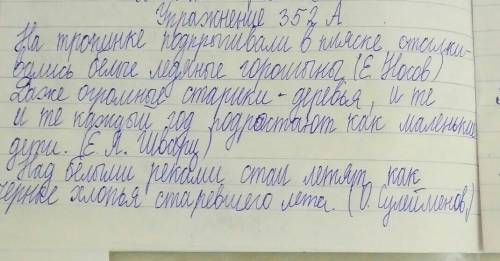 Упражнение 352 А
На тропинке подпрыгивали в пляске, отскаки-
вались белые ледяные горошыны (Е. Носов)
Даже огромные старики-деревья, и те
и те каждый год подрастают как маленькие
дети. (Е. А. Шварц)
Над белыми реками стаи летят, как
черные хлопья старевшего лета. (О. Сулейменов)